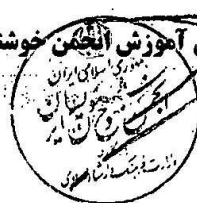 آموزش انجمن خوشن
جمهوری اسلامی ایران
انجمن خوشنویسان ایران
وزارت فرهنگ و ارشاد اسلامی